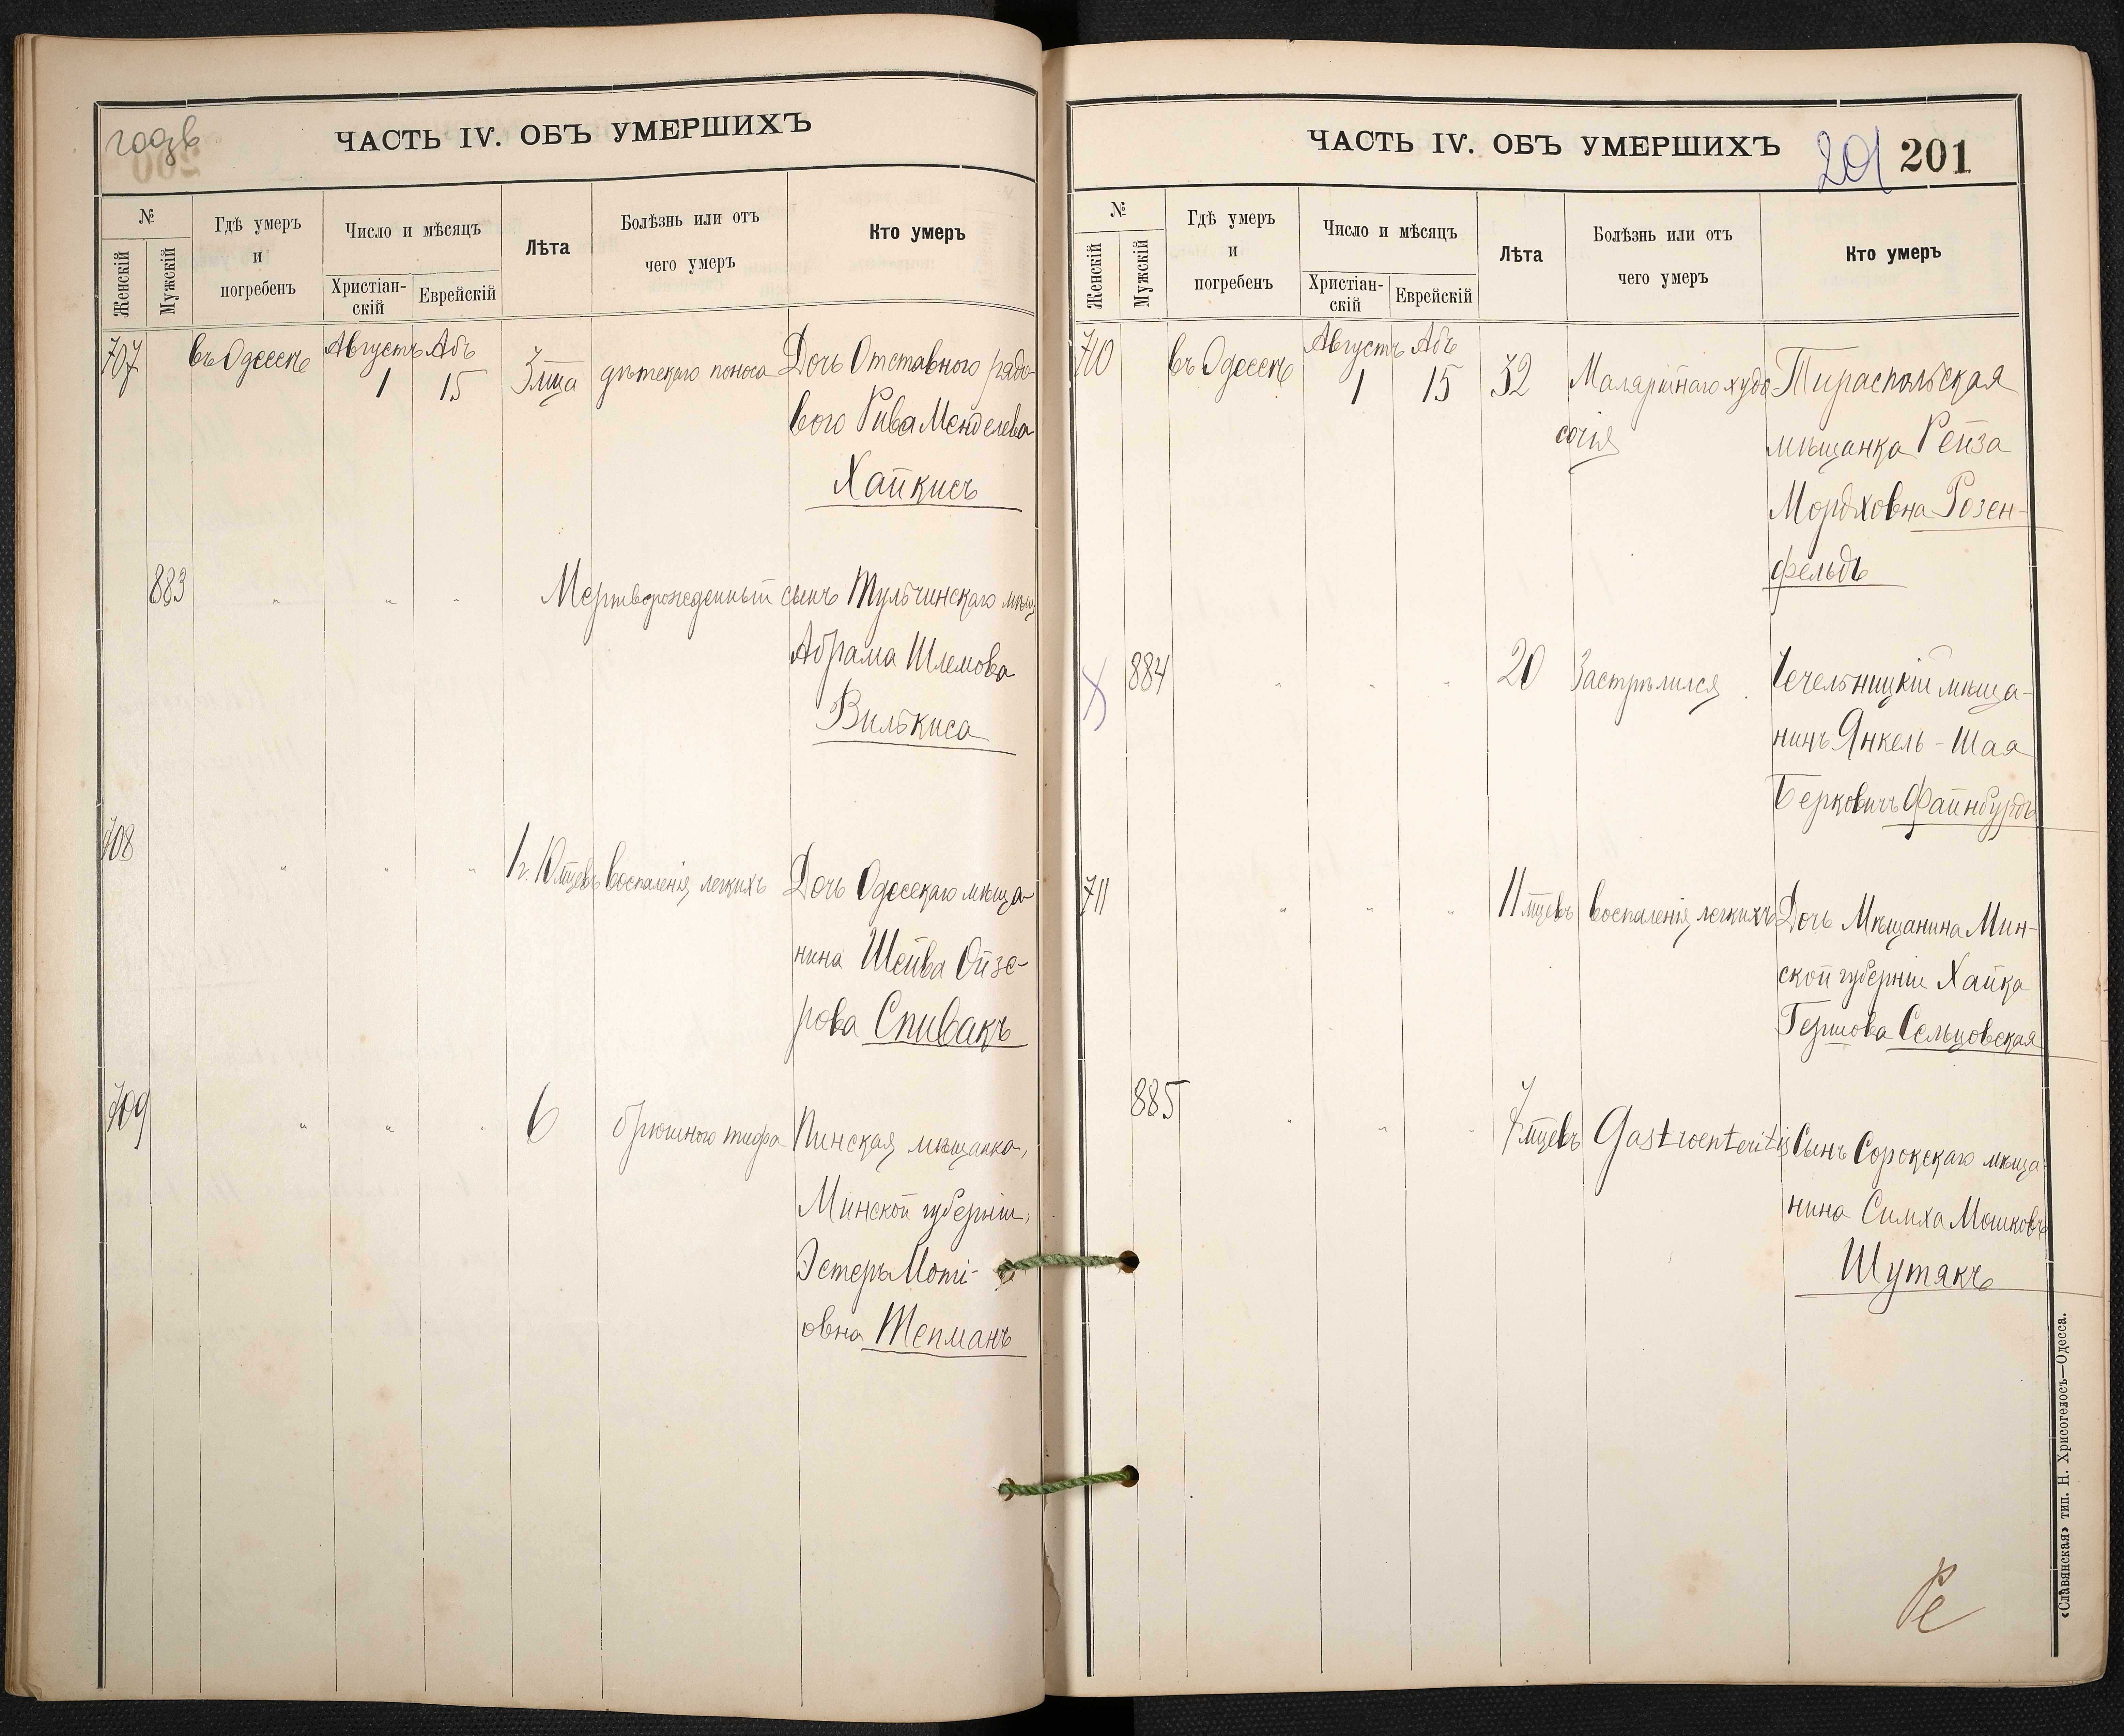 годъ
ЧАСТЬ IV. ОБЪ УМЕРШИХЪ
№
Женскій
Мужскій
Гдѣ умеръ
и
погребенъ
Число и мѣсяцъ
Христіан-
скій
Еврейскій
Лѣта
Болѣзнь или отъ
чего умеръ
Кто умеръ
707 въ Одессѣ Августъ 1 Абъ 15 3 мца дѣтскаго поноса Дочь Отставного рядо-
вого Рива Менделева
Хайкисъ
883 " " " Мертворожденный сынъ Тульчинскаго мѣщ
Абрама Шлемова
Вилькиса
708 " " " 1 г. 10 мцевъ воспаленія легкихъ Дочь Одесскаго мѣща-
нина Шейва Ойзе-
рова Спивакъ
709 " " " 6 брюшного тифа Пинская мѣщанка,
Минской губерніи,
Эстеръ Моті-
овна Тепманъ
ЧАСТЬ IV. ОБЪ УМЕРШИХЪ
201 201
№
Женскій
Мужскій
Гдѣ умеръ
и
погребенъ
Число и мѣсяцъ
Христіан-
скій
Еврейскій
Лѣта
Болѣзнь или отъ
чего умеръ
Кто умеръ
710 въ Одессѣ Августъ 1 Абъ 15 32 Малярійнаго худо- Тираспольская
сочія мѣщанка Рейза
Мордховна Розен-
фельдъ
X 884 " " " 20 Застрѣлился Чечельницкій мѣща-
нинъ Янкель-Шая
Берковичъ Файнбурдъ
711 " " " 11 мцевъ воспаленія легкихъ Дочь Мѣщанина Мин-
ской губерніи Хайка
Гершова Сельцовская
885 " " " 7 мцевъ Gastroenteritis Сынъ Сорокскаго мѣща-
нина Симха Мошковъ
Шутякъ
«Славянская» тип. Н. Хрисогелосъ—Одесса.